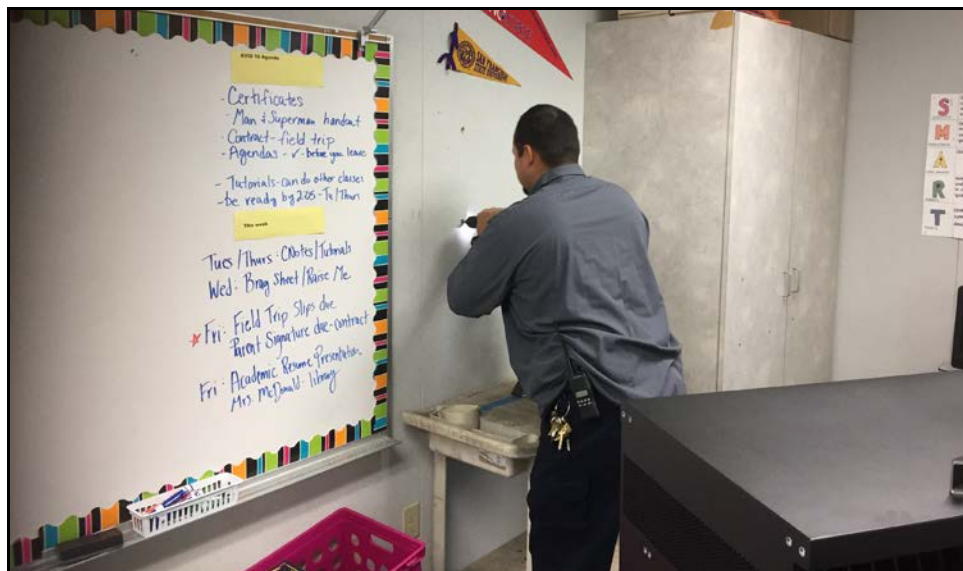 AVID 10 Agenda
- Certificates
- Man & Superman handout
- Contract - field trip
- Agendas - ✓ - before you leave
- Tutorials - can do other classes
- be ready by 2:05 - Tu/Thurs
This week
Tues/Thurs: CNotes/Tutorials
Wed: Brag Sheet/Raise Me
Fri: Field Trip Slips due
Parent Signature due - contract
Fri: Academic Resume Presentation
Mrs. McDonald - library
SAN FRANCISCO
STATE UNIVERSITY
S
M
A
R
T